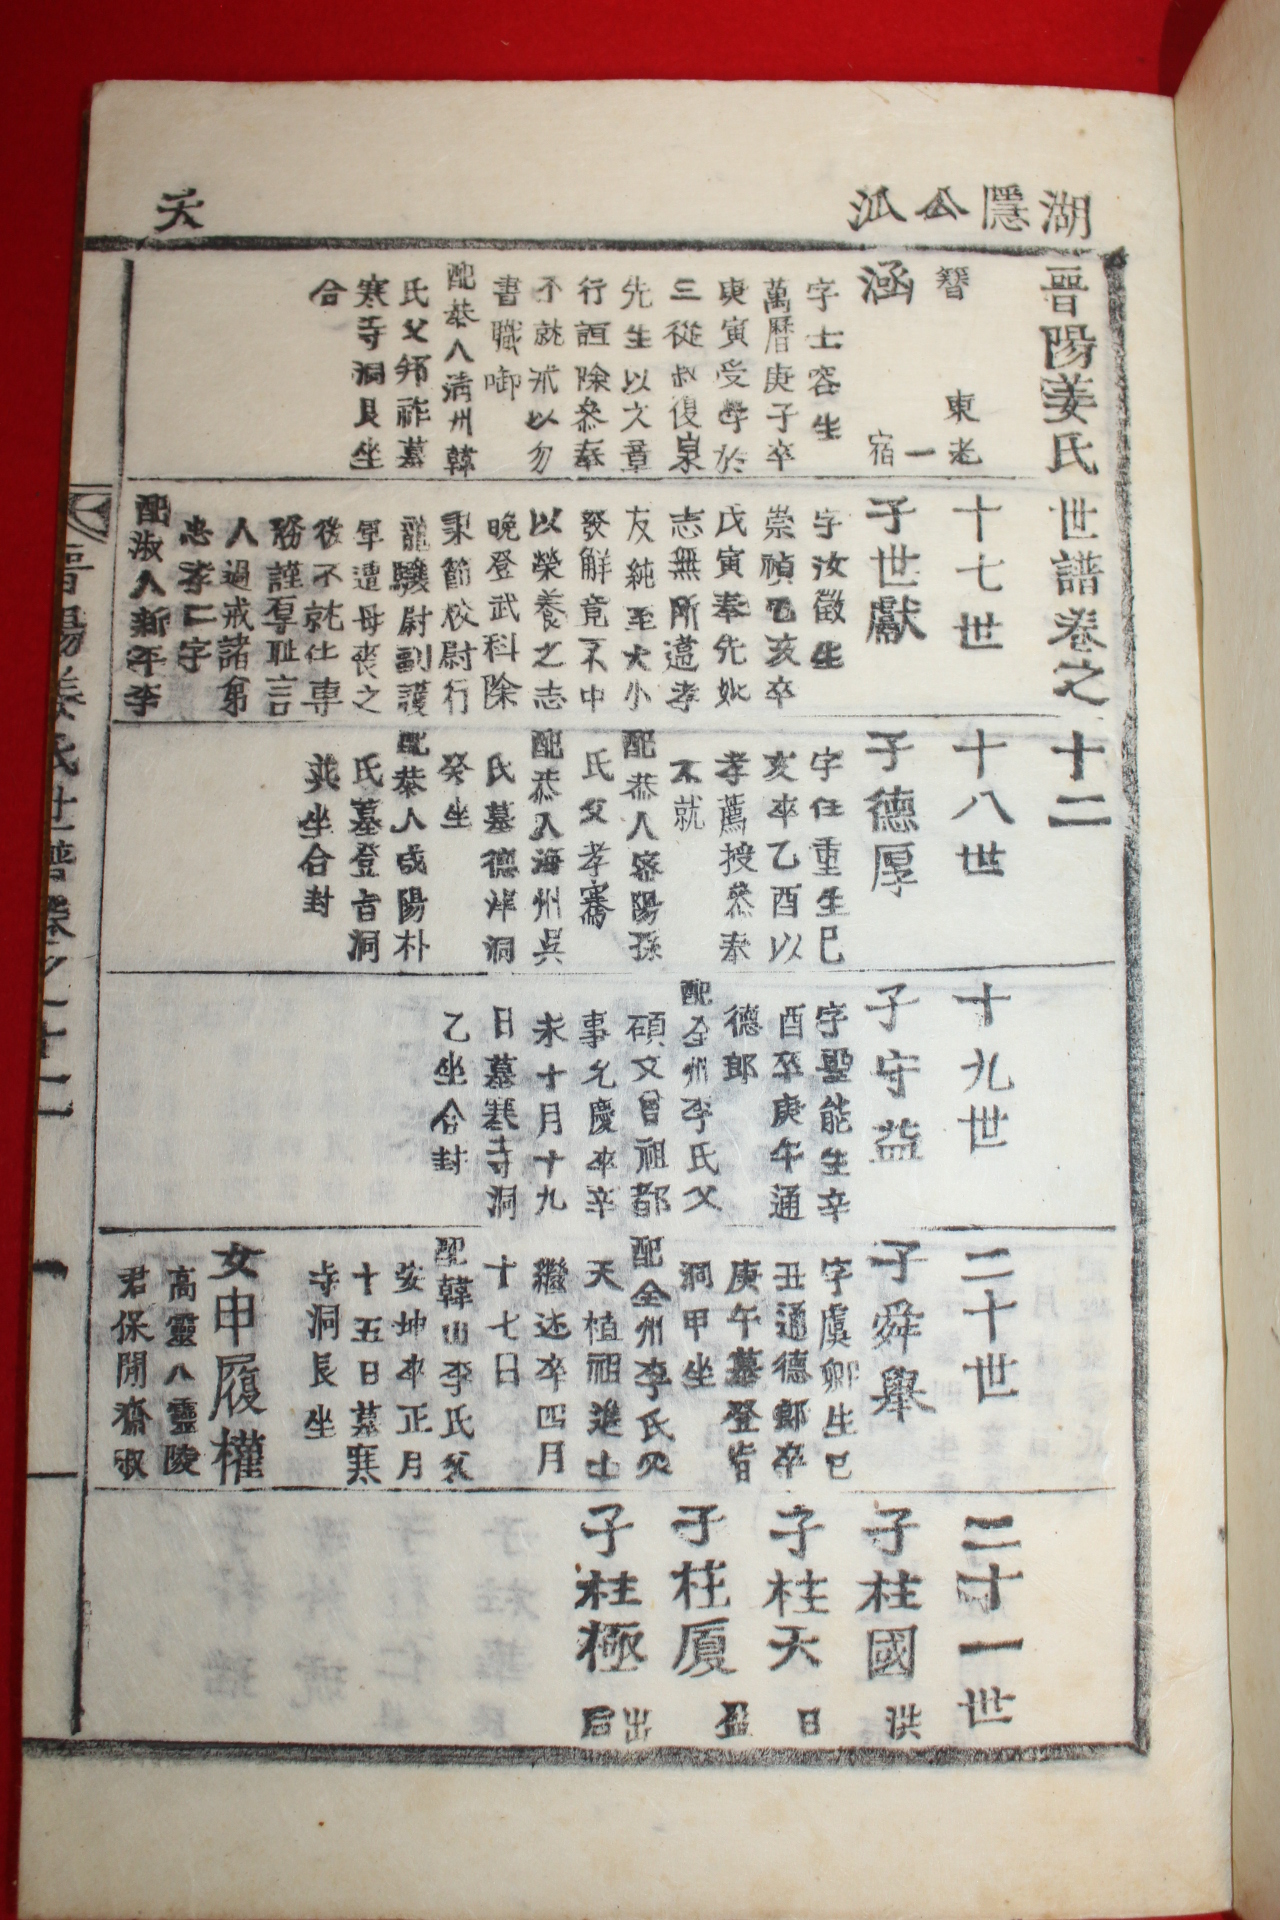 湖隱公派
天
晋陽姜氏世譜卷之十二
晉
東老一
涵
宿
字士容生
萬曆庚子卒
庚寅受學於
三從叔復泉
先生以文章
行誼除參奉
不就戒以勿
書職啣
配恭人淸州韓
氏父邦祚墓
寒寺洞艮坐
合
十七世
子世獻
字汝徵生
崇禎乙亥卒
戊寅奉先妣
志無所違孝
友純至大小
發解竟不中
以榮養之志
晩登武科除
秉節校尉行
龍驤尉副護
軍遭母喪之
後不就仕專
務謹厚耻言
人過戒諸弟
忠孝二字
配淑人新平李
十八世
子德厚
字任重生巳
亥卒乙酉以
孝薦授參奉
不就
配恭人密陽孫
氏父孝騫
配恭人海州吳
氏墓德洋洞
癸坐
配恭人咸陽朴
氏墓登旨洞
巽坐合封
十九世
子守益
字聖能生辛
酉卒庚午通
德郎
配全州李氏父
碩文曾祖都
事允慶卒辛
未十月十九
日墓寒寺洞
乙坐合封
二十世
子舜擧
字虞卿生巳
丑通德郎卒
庚午墓登旨
洞甲坐
配全州李氏父
天植祖進士
繼述卒四月
十七日
配韓山李氏父
安坤卒正月
十五日墓寒
寺洞艮坐
女申履權
高靈人靈陵
君保閒齋叔
二十一世
子柱國
洪
子柱天
日
子柱厦
盈
子柱極
出后
晋陽姜氏世譜卷之十二
一